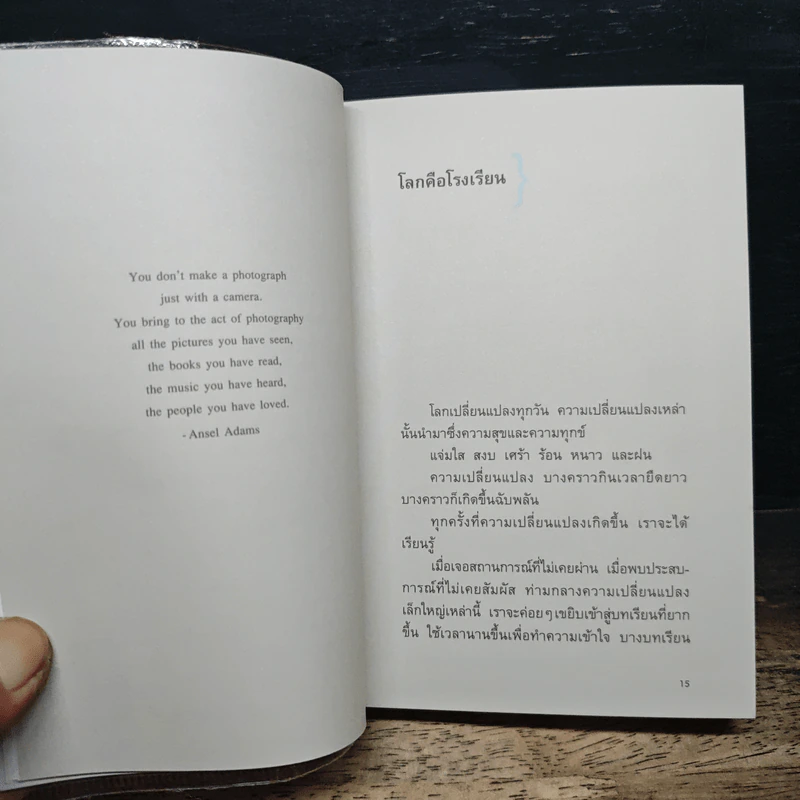 You don't make a photograph
just with a camera.
You bring to the act of photography
all the pictures you have seen,
the books you have read,
the music you have heard,
the people you have loved.
- Ansel Adams
โลกคือโรงเรียน }
โลกเปลี่ยนแปลงทุกวัน ความเปลี่ยนแปลงเหล่า
นั้นนำมาซึ่งความสุขและความทุกข์
แจ่มใส สงบ เศร้า ร้อน หนาว และฝน
ความเปลี่ยนแปลง บางคราวกินเวลายืดยาว
บางคราวก็เกิดขึ้นฉับพลัน
ทุกครั้งที่ความเปลี่ยนแปลงเกิดขึ้น เราจะได้
เรียนรู้
เมื่อเจอสถานการณ์ที่ไม่เคยผ่าน เมื่อพบประสบ-
การณ์ที่ไม่เคยสัมผัส ท่ามกลางความเปลี่ยนแปลง
เล็กใหญ่เหล่านี้ เราจะค่อยๆ เขยิบเข้าสู่บทเรียนที่ยาก
ขึ้น ใช้เวลานานขึ้นเพื่อทำความเข้าใจ บางบทเรียน
15